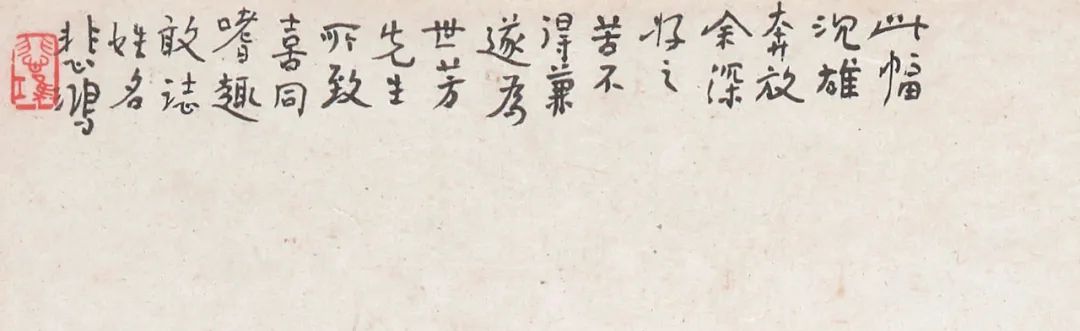 此幅
沉雄
奔放
余深
好之
苦不
得兼
遂为
世芳
先生
所致
喜同
嗜趣
敢志
姓名
悲鸿